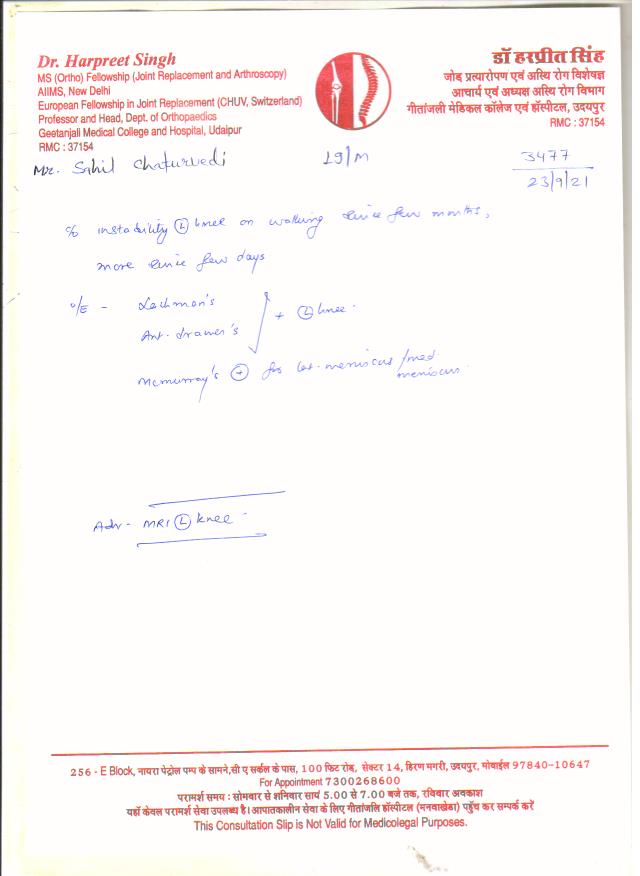 Dr. Harpreet Singh
MS (Ortho) Fellowship (Joint Replacement and Arthroscopy)
AIIMS, New Delhi
European Fellowship in Joint Replacement (CHUV, Switzerland)
Professor and Head, Dept. of Orthopaedics
Geetanjali Medical College and Hospital, Udaipur
RMC : 37154
डॉ हरप्रीत सिंह
जोड प्रत्यारोपण एवं अस्थि रोग विशेषज्ञ
आचार्य एवं अध्यक्ष अस्थि रोग विभाग
गीतांजली मेडिकल कॉलेज एवं हॉस्पीटल, उदयपुर
RMC : 37154
Mr. Sahil Chaturvedi 19/M 3477
23/9/21
c/o instability Ⓛ knee on walking since few months,
more since few days
o/E - Lachman's
Ant. drawer's + Ⓛ knee.
Mcmurray's ⊕ for lat. meniscus / med
meniscus.
Adv - MRI Ⓛ knee -
256 - E Block, नायरा पेट्रोल पम्प के सामने, सी ए सर्कल के पास, 100 फिट रोड, सेक्टर 14, हिरण मगरी, उदयपुर, मोबाईल 97840-10647
For Appointment 7300268600
परामर्श समय : सोमवार से शनिवार सायं 5.00 से 7.00 बजे तक, रविवार अवकाश
यहाँ केवल परामर्श सेवा उपलब्ध है। आपातकालीन सेवा के लिए गीतांजलि हॉस्पीटल (मनवाखेडा) पहुँच कर सम्पर्क करें
This Consultation Slip is Not Valid for Medicolegal Purposes.